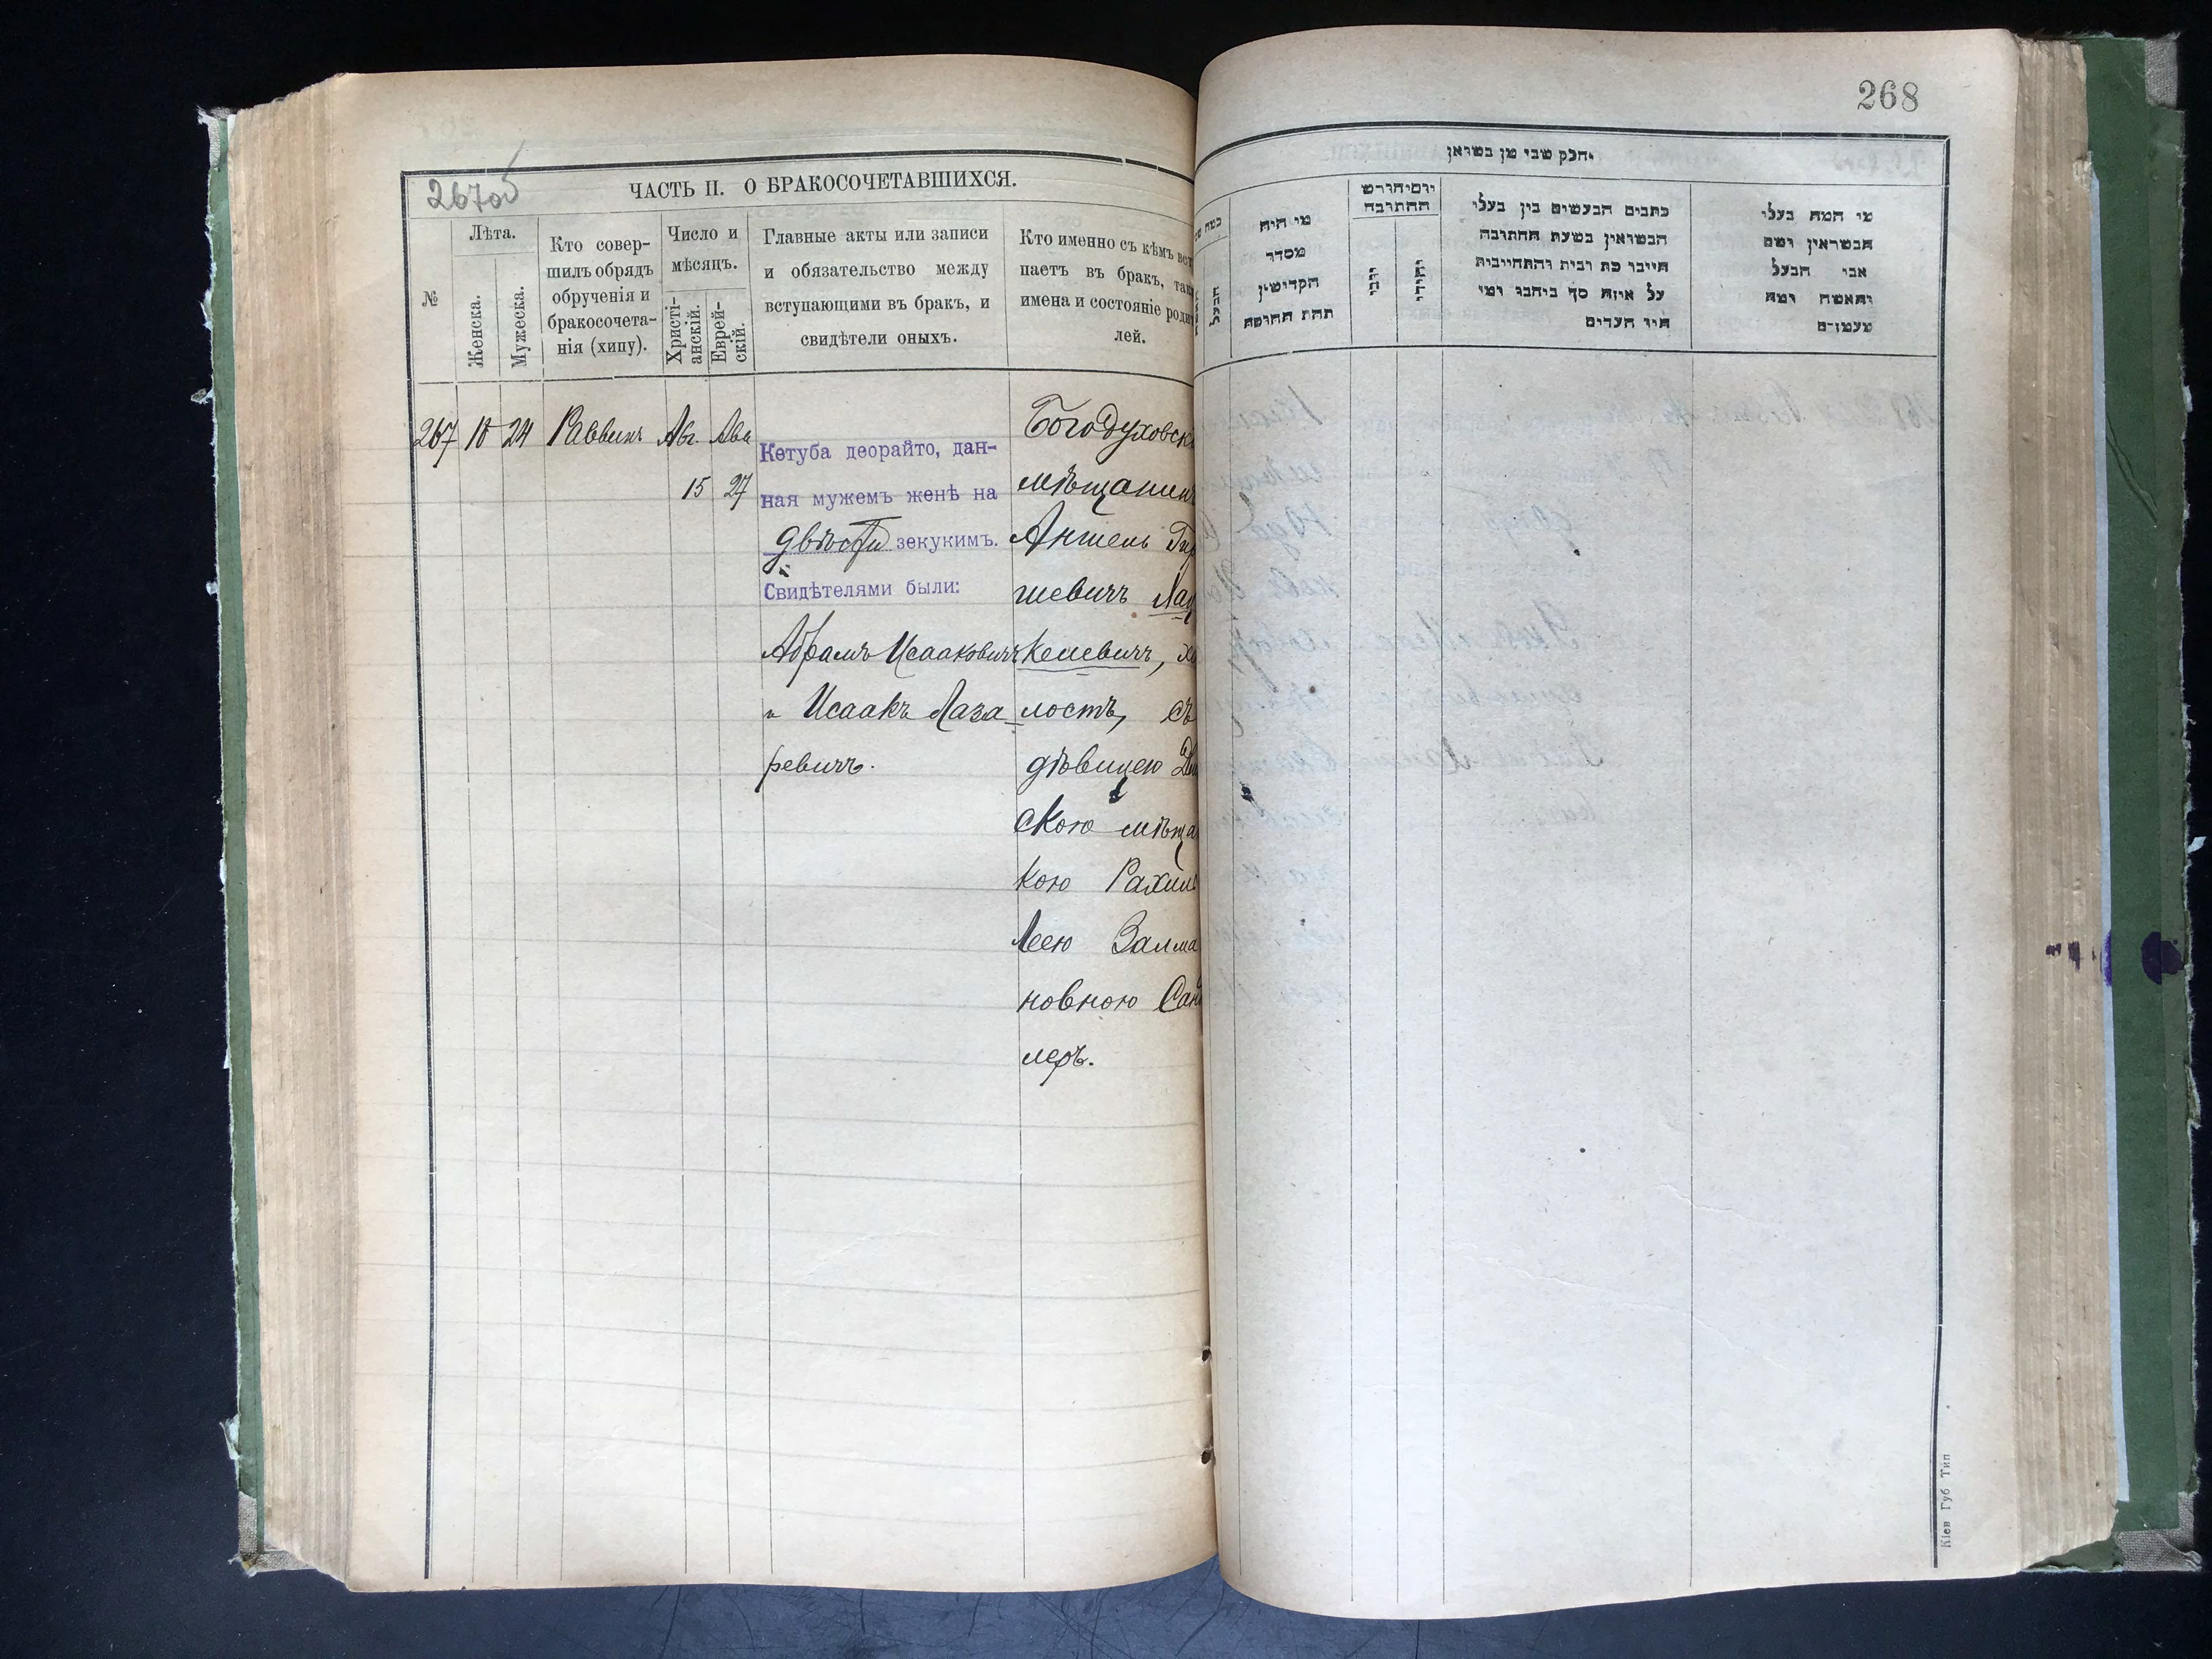 267 об
ЧАСТЬ II. О БРАКОСОЧЕТАВШИХСЯ.
№
Лѣта.
Женска.
Мужеска.
Кто совер-
шилъ обрядъ
обрученія и
бракосочета-
нія (хипу).
Число и
мѣсяцъ.
Христі-
анскій.
Еврей-
скій.
Главные акты или записи
и обязательство между
вступающими въ бракъ, и
свидѣтели оныхъ.
Кто именно съ кѣмъ вст
паетъ въ бракъ, так
имена и состояніе роди
лей.
267 18 24 Раввинъ Авг. Ава
15 27
Кетуба деорайто, дан-
ная мужемъ женѣ на
двѣсти зекукимъ.
Свидѣтелями были:
Абрамъ Исааковичъ
и Исаакъ Лаза-
ревичъ.
Богодуховск
мѣщанинъ
Аншель Гир
шевичъ Лац
кеневичъ, хо
лостъ, съ
дѣвицею
скою мѣща
кою Рахиль
Леею Залма
новною Сан
леръ.
268
וחלק שני מן נשואין
מי היה
מסדר
הקדושין
תחת החופה
יום וחודש
הכתובה
כתבים הנעשים בין בעלי
הנשואין בשעת הכתובה
חייבו כת רבית והתחייבות
על איזה סך ביחבו ומי
היו העדים
מי המה בעלי
הנשואין ושם
אבי הבעל
והאשה ומה
מעמדם
Кіев Губ Тип